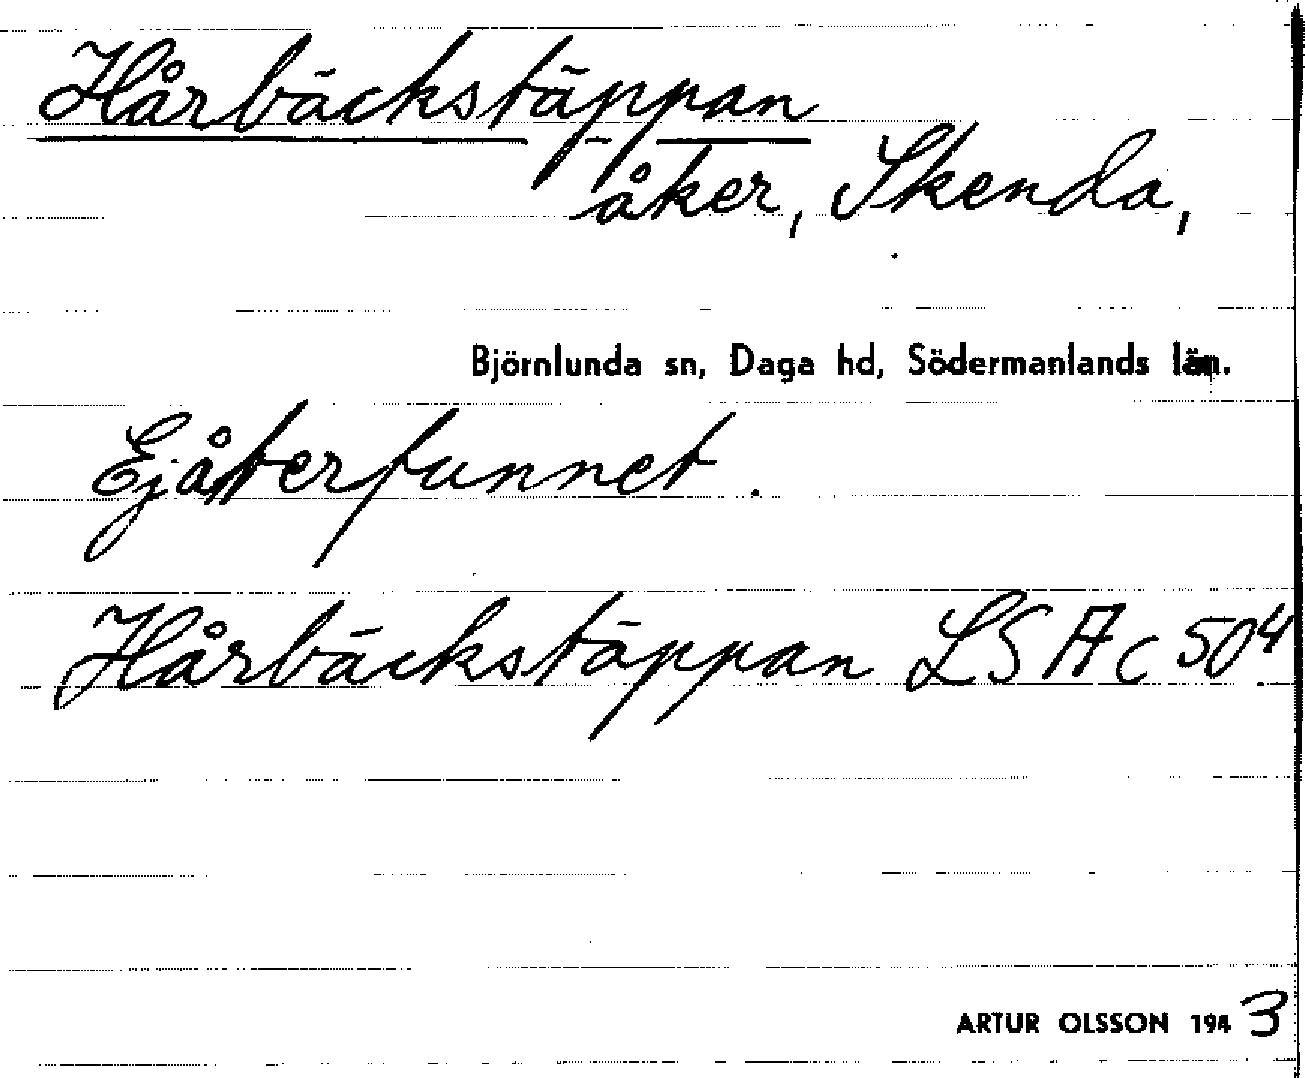 Hårbäckstäppan
åker, Skenda,
Björnlunda sn, Daga hd, Södermanlands län.
Ej återfunnet.
Hårbäckstäppan LSA C 50⁴
ARTUR OLSSON 1943